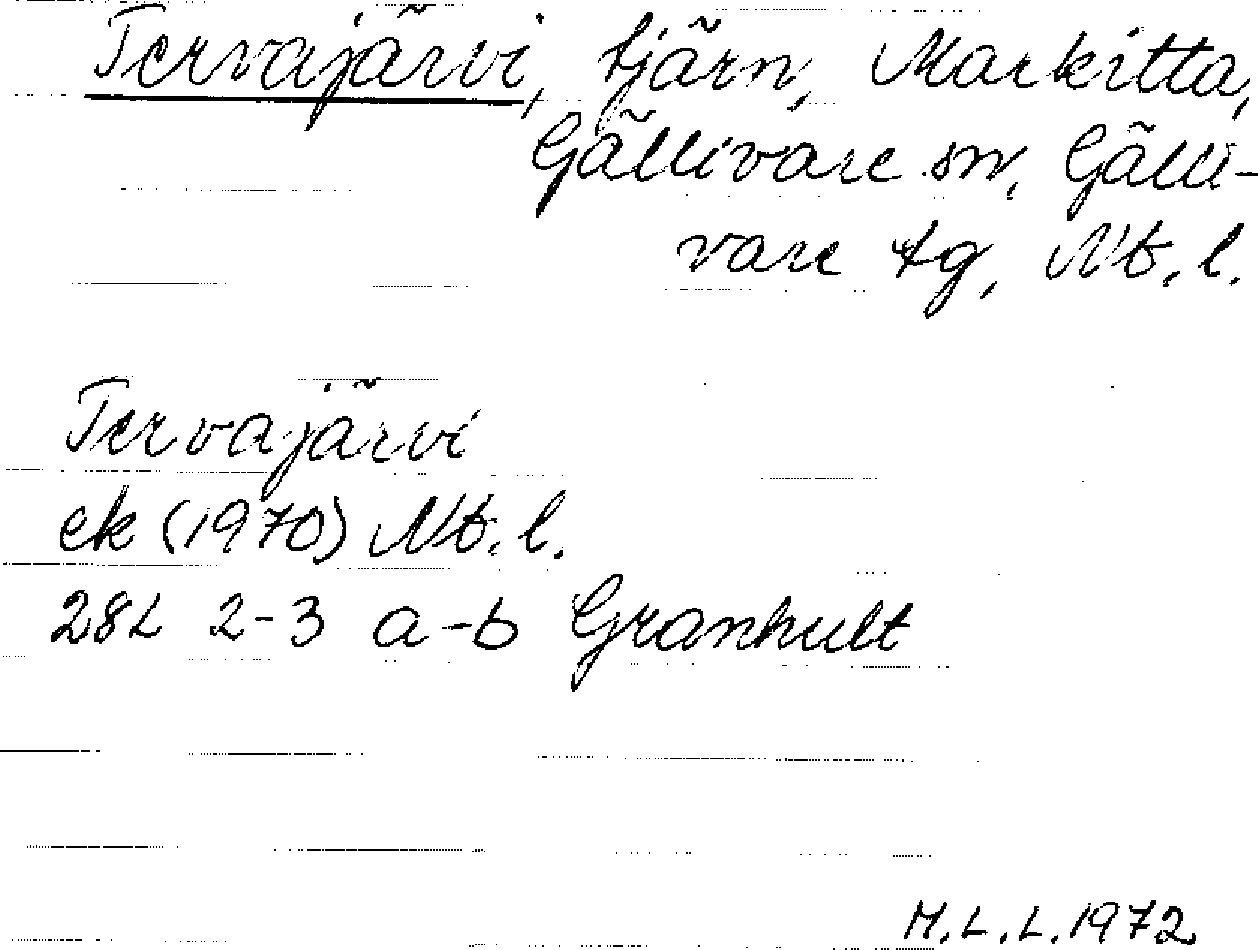 Tervajärvi, tjärn, Markitta,
Gällivare sn, Gälli-
vare tg, Nb. l.
Tervajärvi
ek (1970) Nb. l.
28L 2-3 a-b Granhult
M.L.L. 1972